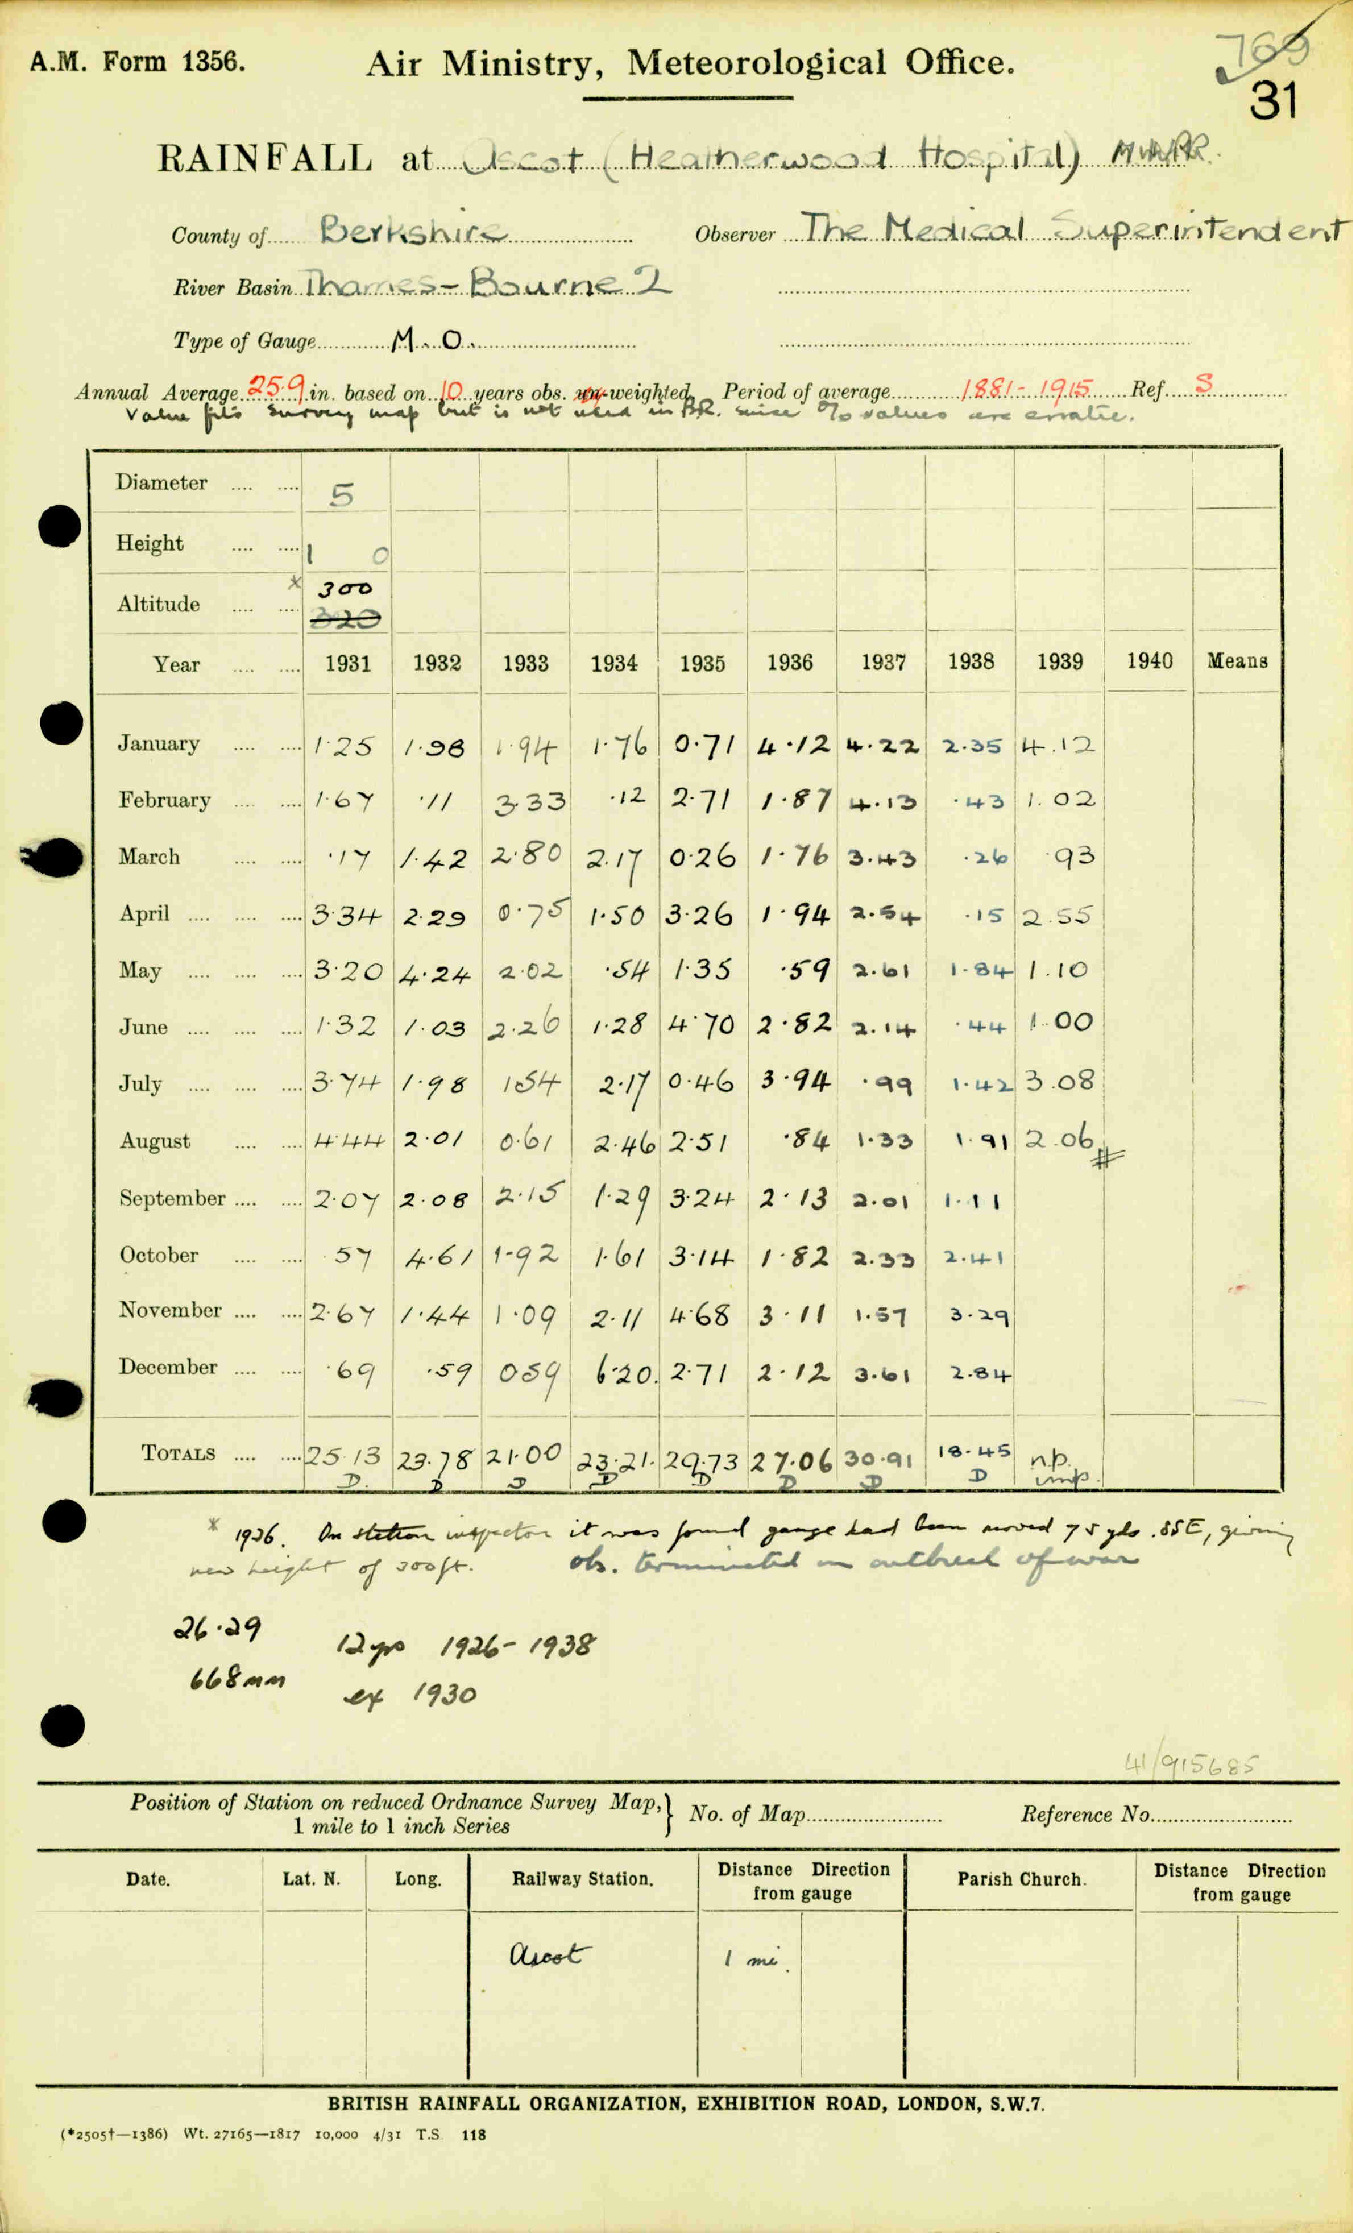 769
A.M. Form 1356. Air Ministry, Meteorological Office.
31
RAINFALL at Ascot (Heatherwood Hospital)
County of Berkshire Observer The Medical Superintendent
River Basin Thames - Bourne 2
Type of Gauge M.O.
Annual Average 25.9 in. based on 10 years obs. un-weighted. Period of average 1881-1915 Ref. S
Value fits survey map but is not used in B.R. since % values are erratic.
Diameter 5
Height 1 0
Altitude × 300 320
Year 1931 1932 1933 1934 1935 1936 1937 1938 1939 1940 Means
January 1.25 1.98 1.94 1.76 0.71 4.12 4.22 2.35 4.12
February 1.67 .11 3.33 .12 2.71 1.87 4.13 .43 1.02
March .17 1.42 2.80 2.17 0.26 1.76 3.43 .26 .93
April 3.34 2.29 0.75 1.50 3.26 1.94 2.54 .15 2.55
May 3.20 4.24 2.02 .54 1.35 .59 2.61 1.84 1.10
June 1.32 1.03 2.26 1.28 4.70 2.82 2.14 .44 1.00
July 3.74 1.98 1.54 2.17 0.46 3.94 .99 1.42 3.08
August 4.44 2.01 0.61 2.46 2.51 .84 1.33 1.91 2.06 #
September 2.07 2.08 2.15 1.29 3.24 2.13 2.01 1.11
October .57 4.61 1.92 1.61 3.14 1.82 2.33 2.41
November 2.67 1.44 1.09 2.11 4.68 3.11 1.57 3.29
December .69 .59 0.59 6.20. 2.71 2.12 3.61 2.84
TOTALS 25.13 23.78 21.00 23.21. 29.73 27.06 30.91 18.45 n.p.
D. D D D D D D D imp.
× 1936. On station inspection it was found gauge had been moved 75 yds. SSE, giving
new height of 300ft. obs. terminated on outbreak of war
26.29 12 yrs 1926-1938
668mm ex 1930
41/915685
Position of Station on reduced Ordnance Survey Map,} No. of Map Reference No.
1 mile to 1 inch Series
Date. Lat. N. Long. Railway Station. Distance Direction from gauge Parish Church. Distance Direction from gauge
Ascot 1 mi.
BRITISH RAINFALL ORGANIZATION, EXHIBITION ROAD, LONDON, S.W.7.
(*2505†—1386) Wt. 27165—1817 10,000 4/31 T.S. 118